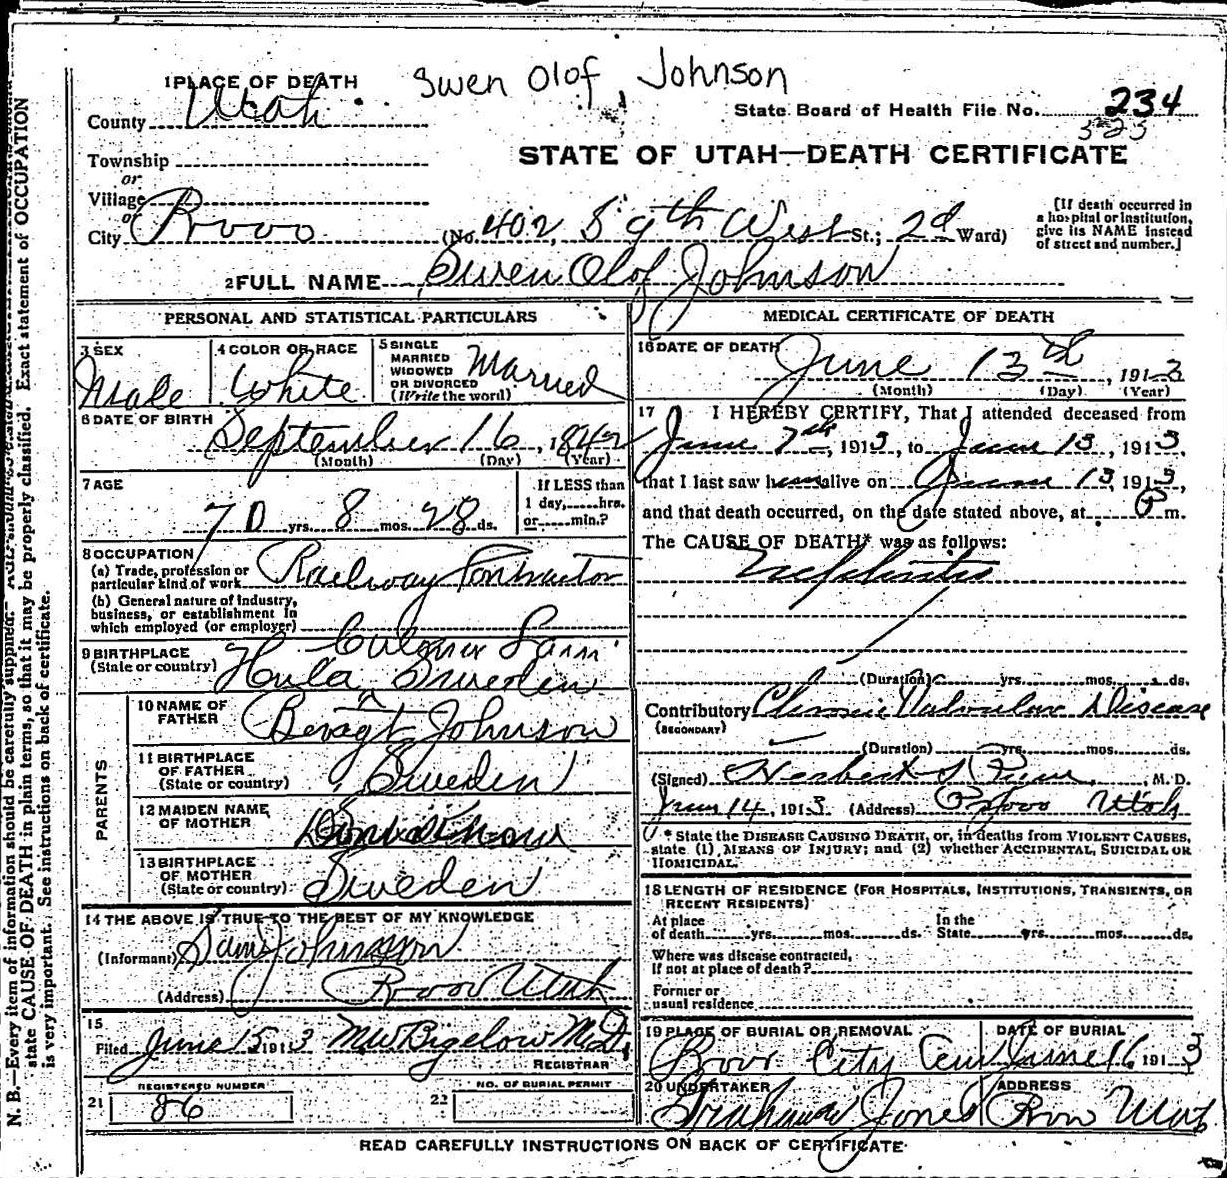 Swen Olof Johnson
1 PLACE OF DEATH
County Utah
State Board of Health File No. 234
Township
or
Village
or
City Provo
STATE OF UTAH—DEATH CERTIFICATE
(No. 402, S 9th West St.; 2d Ward)
[If death occurred in
a hospital or institution,
give its NAME instead
of street and number.]
2 FULL NAME Swen Olof Johnson
PERSONAL AND STATISTICAL PARTICULARS
3 SEX
Male
4 COLOR OR RACE
White
5 SINGLE
MARRIED
WIDOWED
OR DIVORCED
(Write the word)
Married
6 DATE OF BIRTH
September 16, 1842
(Month) (Day) (Year)
7 AGE
70 yrs. 8 mos. 28 ds.
If LESS than
1 day, hrs.
or min.?
8 OCCUPATION
(a) Trade, profession or
particular kind of work Railway Contractor
(b) General nature of industry,
business, or establishment in
which employed (or employer)
9 BIRTHPLACE
(State or country)
Sweden
PARENTS
10 NAME OF
FATHER
Johnson
11 BIRTHPLACE
OF FATHER
(State or country)
Sweden
12 MAIDEN NAME
OF MOTHER
13 BIRTHPLACE
OF MOTHER
(State or country)
Sweden
14 THE ABOVE IS TRUE TO THE BEST OF MY KNOWLEDGE
(Informant) Sam Johnson
(Address) Provo Utah
15
Filed June 15 1913 MW Bigelow M.D.
REGISTRAR
REGISTERED NUMBER
21 86
NO. OF BURIAL PERMIT
22
MEDICAL CERTIFICATE OF DEATH
16 DATE OF DEATH
June 13th, 1913
(Month) (Day) (Year)
17 I HEREBY CERTIFY, That I attended deceased from
June 7th, 1913, to June 13, 1913,
that I last saw him alive on June 13, 1913,
and that death occurred, on the date stated above, at P m.
The CAUSE OF DEATH* was as follows:
Nephritis
(Duration) yrs. mos. ds.
Contributory Chronic Valvular Disease
(SECONDARY)
(Duration) yrs. mos. ds.
(Signed) Herbert S Pyne, M. D.
June 14, 1913 (Address) Provo Utah
* State the DISEASE CAUSING DEATH, or, in deaths from VIOLENT CAUSES,
state (1) MEANS OF INJURY; and (2) whether ACCIDENTAL, SUICIDAL OR
HOMICIDAL.
18 LENGTH OF RESIDENCE (FOR HOSPITALS, INSTITUTIONS, TRANSIENTS, OR
RECENT RESIDENTS)
At place
of death yrs. mos. ds.
In the
State yrs. mos. ds.
Where was disease contracted,
if not at place of death?
Former or
usual residence
19 PLACE OF BURIAL OR REMOVAL
Provo City Cem
DATE OF BURIAL
June 16 1913
20 UNDERTAKER
Graham Jones
ADDRESS
Provo Utah
READ CAREFULLY INSTRUCTIONS ON BACK OF CERTIFICATE
N. B.—Every item of information should be carefully supplied.
Exact statement of OCCUPATION
state CAUSE OF DEATH in plain terms, so that it may be properly classified.
is very important. See instructions on back of certificate.